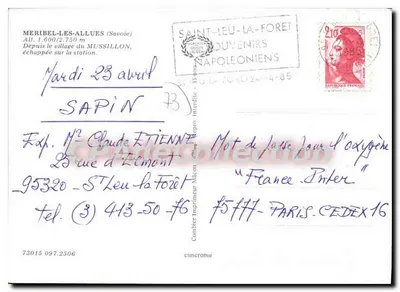 MERIBEL-LES-ALLUES (Savoie)
Alt. 1.600/2.750 m
Depuis le village du MUSSILLON,
échappée sur la station.
SAINT-LEU-LA-FORET
SOUVENIRS
NAPOLEONIENS
2,10
Mardi 23 avril
SAPIN
73
Exp. Mr Claude ETIENNE
25 rue d'Ermont
95320 - St Leu la Forêt
Tel. (3) 413-50-76
Mot de passe pour l'oxygène
"France Inter"
75777 - PARIS. CEDEX 16
73015 097.2506
cimcrome